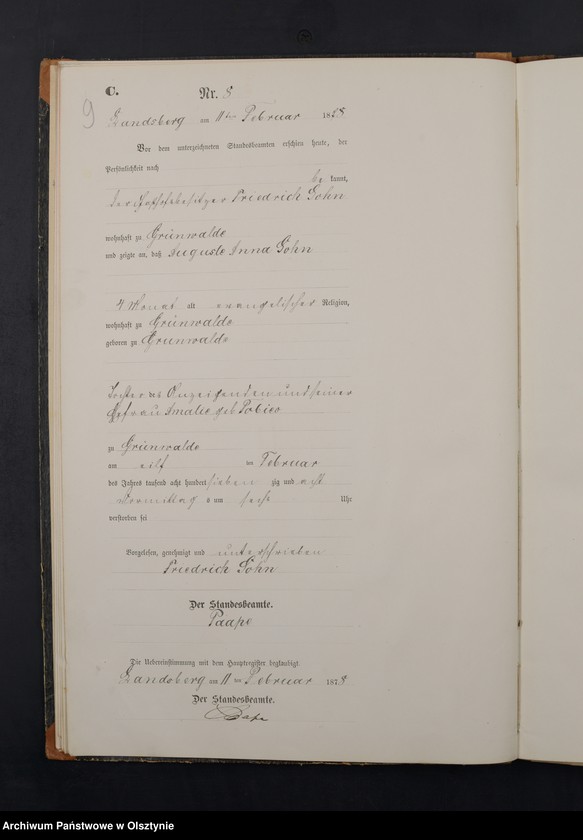 C.
Nr. 8
9
Landsberg am 11ten Februar 1878
Vor dem unterzeichneten Standesbeamten erschien heute, der
Persönlichkeit nach
be kannt,
der Friedrich Gohn
wohnhaft zu Grünwalde
und zeigte an, daß Auguste Anna Gohn
4 Monat alt evangelischer Religion,
wohnhaft zu Grünwalde
geboren zu Grünwalde
Tochter des Anzeigenden und seiner
Ehefrau Amalie geb
zu Grünwalde
am eilf ten Februar
des Jahres tausend acht hundert sieben zig und acht
Vormittag s um sechs Uhr
verstorben sei
Vorgelesen, genehmigt und unterschrieben
Friedrich Gohn
Der Standesbeamte.
Paape
Die Uebereinstimmung mit dem Hauptregister beglaubigt.
Landsberg am 11 ten Februar 1878
Der Standesbeamte.
Paape
Archiwum Państwowe w Olsztynie